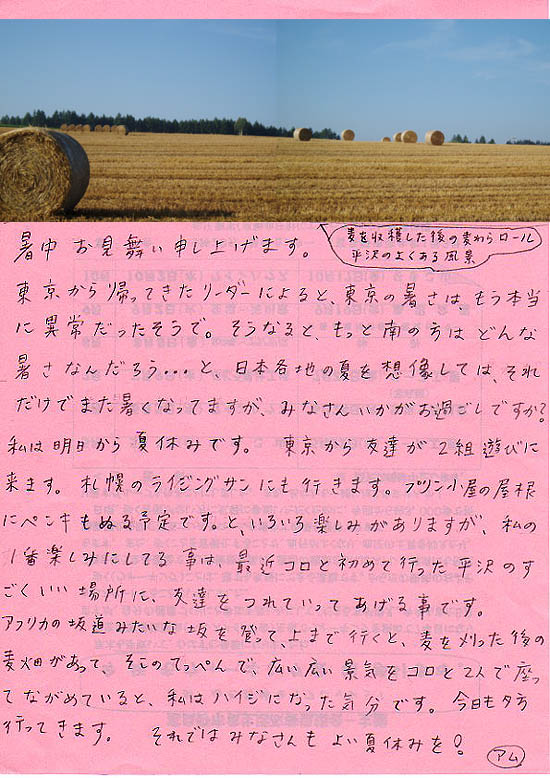 麦を収穫した後の麦わらロール
平沢のよくある風景
暑中お見舞い申し上げます。
東京から帰ってきたリーダーによると、東京の暑さは、もう本当
に異常だったそうで。そうなると、もっと南の方はどんな
暑さなんだろう...と、日本各地の夏を想像しては、それ
だけでまた暑くなってますが、みなさんいかがお過ごしですか?
私は明日から夏休みです。 東京から友達が2組遊びに
来ます。札幌のライジングサンにも行きます。プリン小屋の屋根
にペンキもぬる予定です。と、いろいろ楽しみがありますが、私の
1番楽しみにしてる事は、最近コロと初めて行った平沢のす
ごくいい場所に、友達をつれていってあげる事です。
アフリカの坂道みたいな坂を登って、上まで行くと、麦を刈った後の
麦畑があって、そこのてっぺんで、広い広い景気をコロと2人で座っ
てながめていると、私はハイジになった気分です。今日も夕方
行ってきます。 それではみなさんもよい夏休みを!
アム